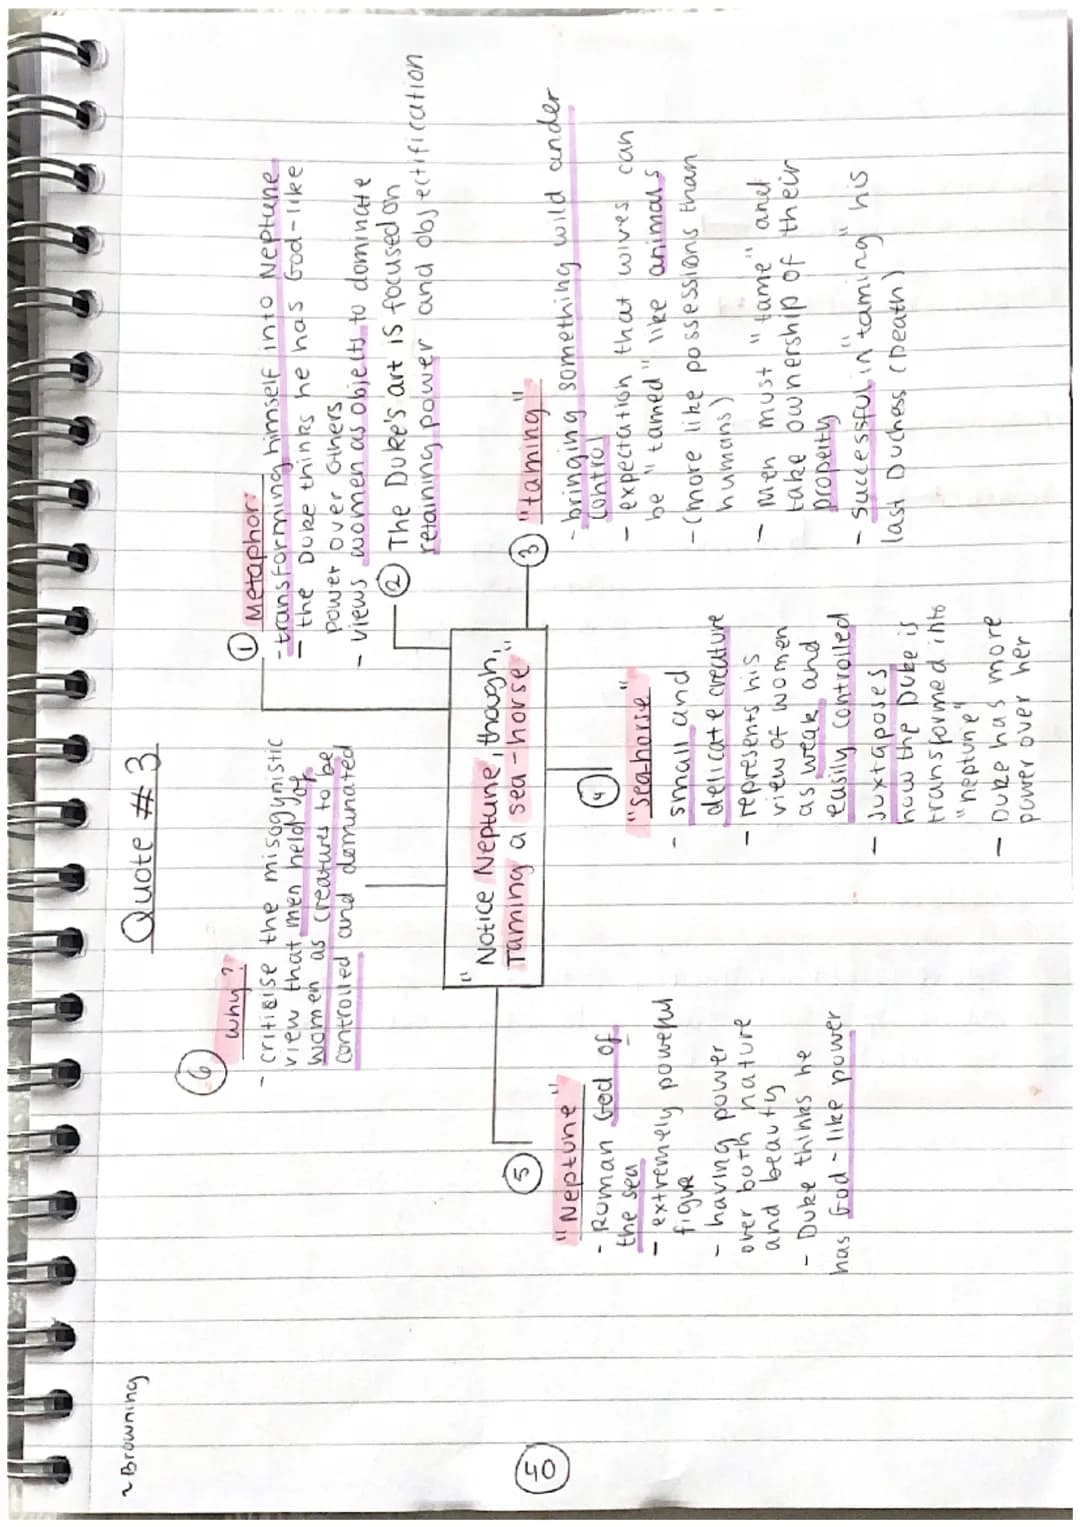 ~ Browning
Quote #3
⑥ why?
- critisise the misogynistic
view that men held of
women as creatures to be
controlled and dominated
① Metaphor
- transforming himself into Neptune
- the Duke thinks he has God-like
power over others
- views women as objects to dominate
② The Duke's art is focused on
retaining power and objectification
"Notice Neptune, though,
Taming a sea-horse"
③ "taming"
- bringing something wild under
control
- expectation that wives can
be "tamed" like animals
- (more like possessions than
humans)
- men must "tame" and
take ownership of their
property
- successful in "taming" his
last Duchess (Death)
④ "sea-horse"
- small and
delicate creature
- represents his
view of women
as weak and
easily controlled
- Juxtaposes
how the Duke is
transformed into
"neptune"
- Duke has more
power over her
⑤ "Neptune"
- Roman God of
the sea
- extremely powerful
figure
- having power
over both nature
and beauty
- Duke thinks he
has God-like power
40